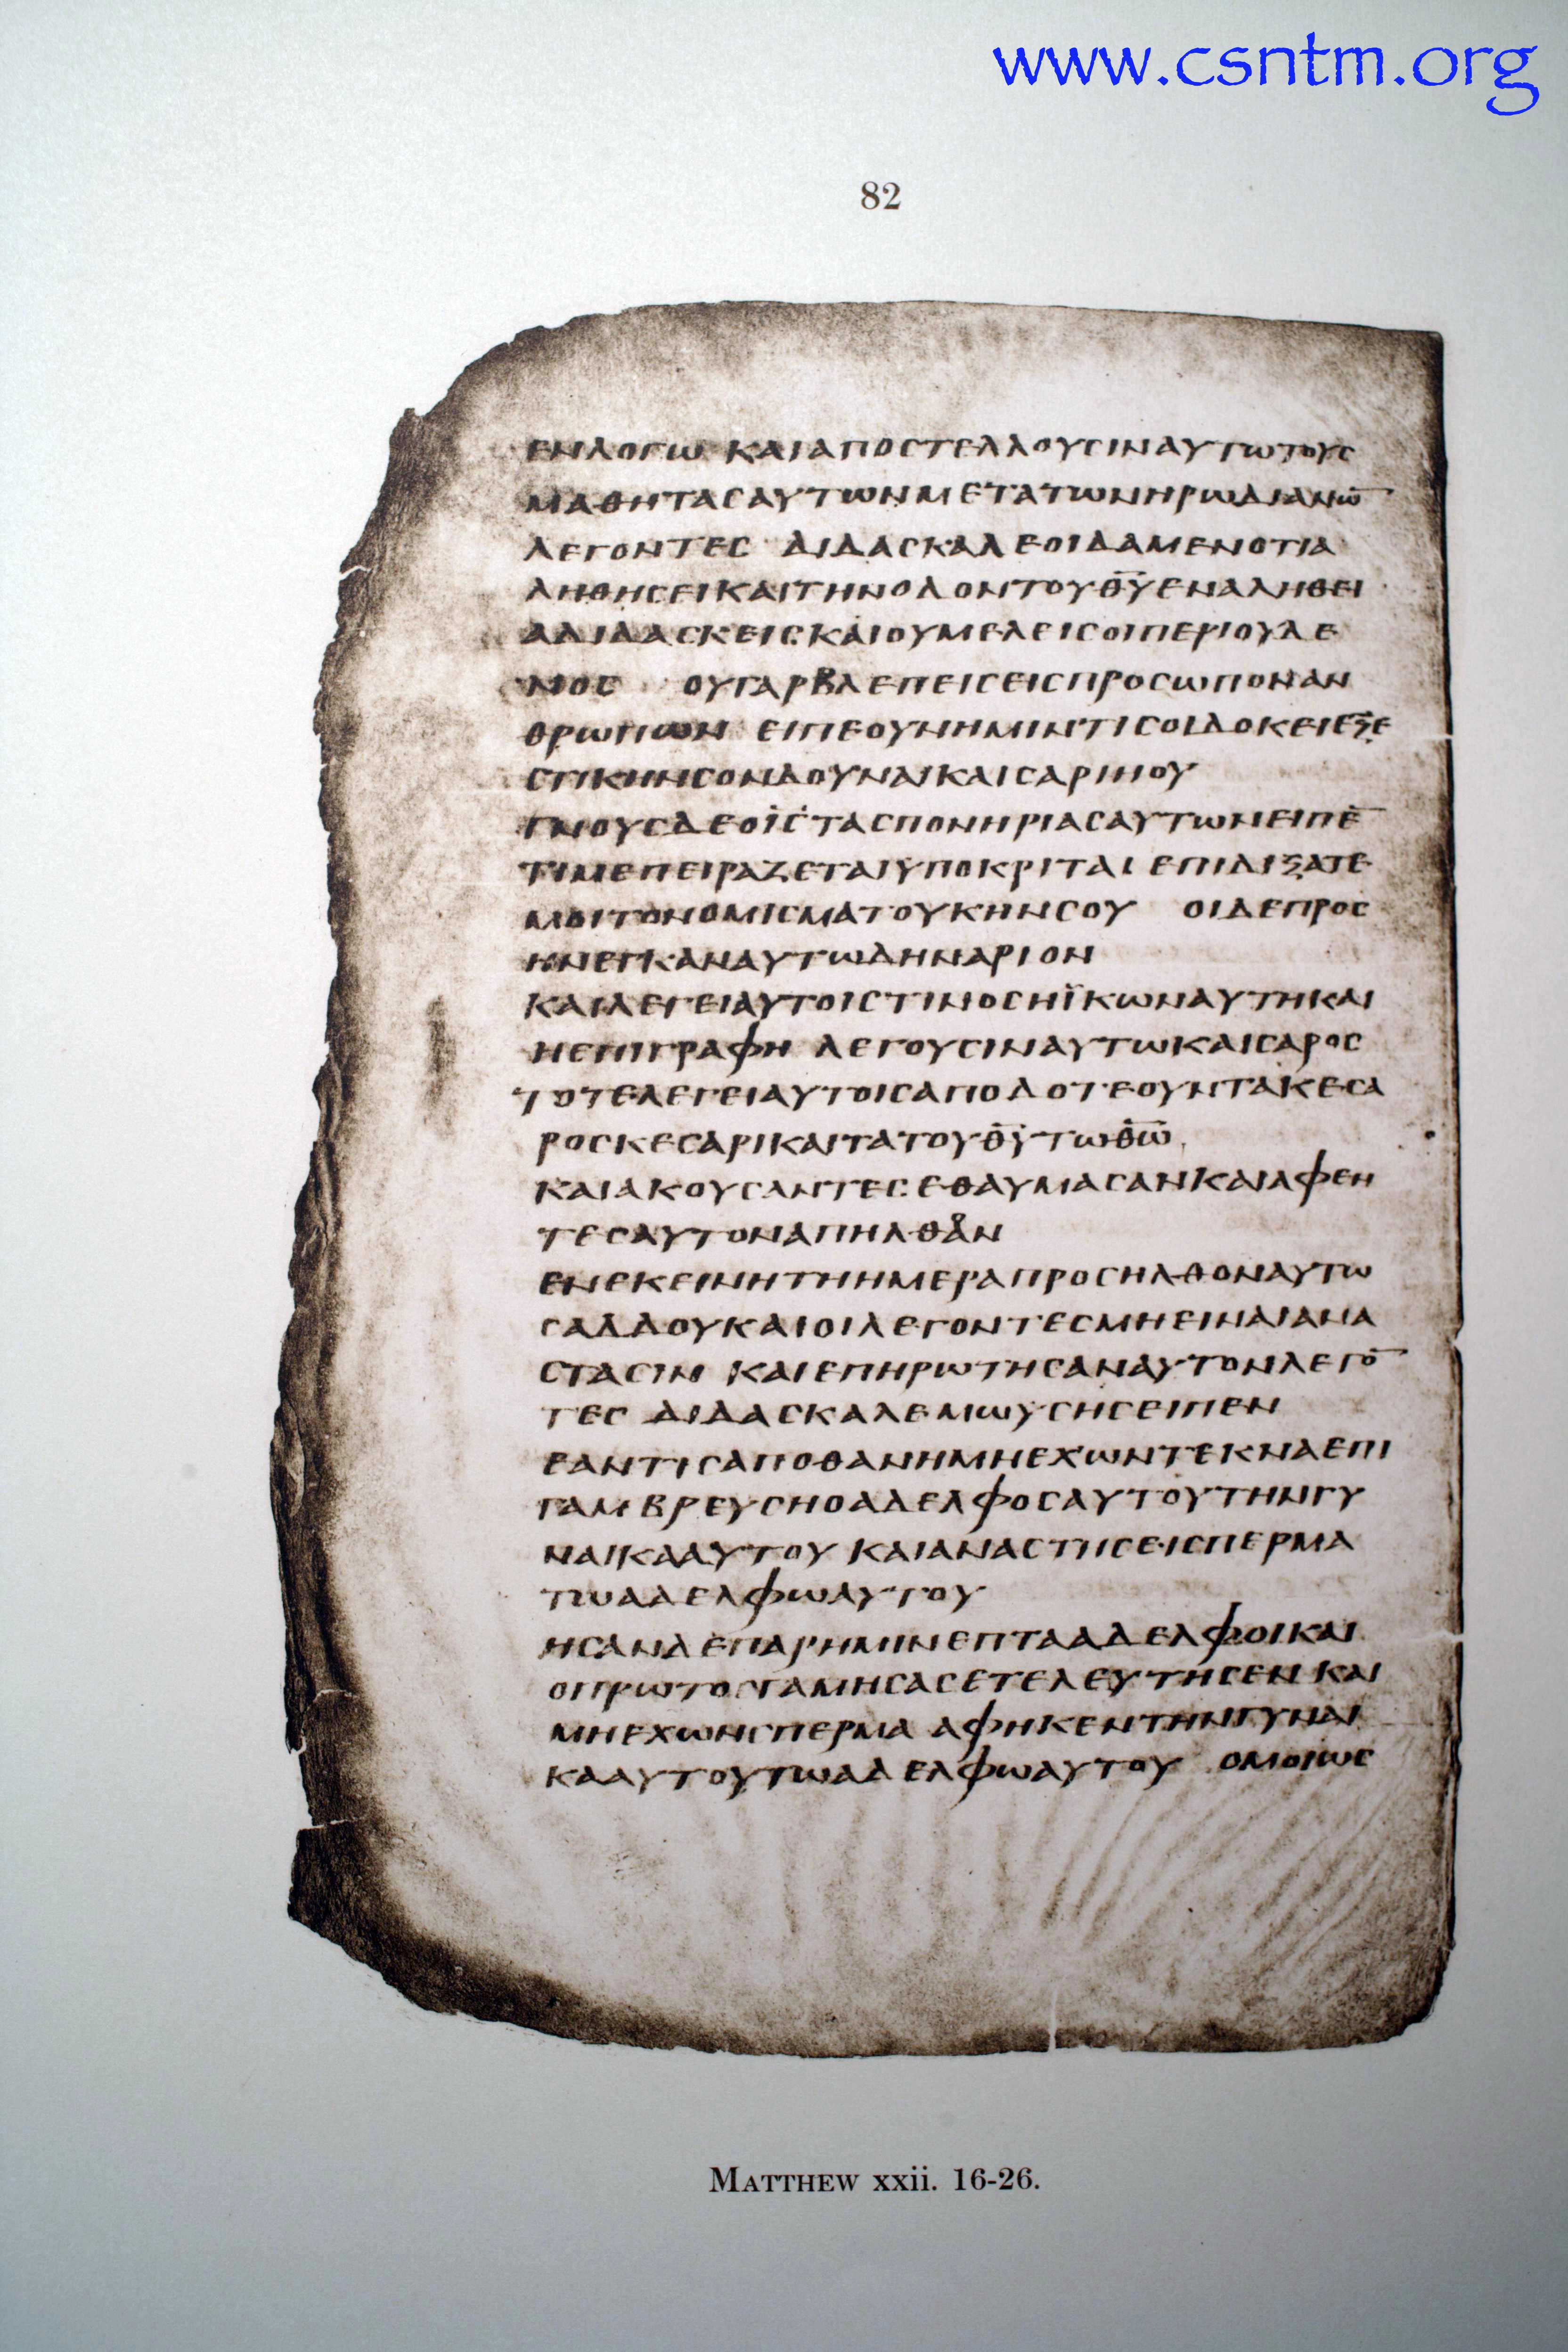 www.csntm.org
82
ΕΝΛΟΓΩ ΚΑΙΑΠΟCΤΕΛΛΟΥCΙΝΑΥΤΩΤΟΥC
ΜΑΘΗΤΑCΑΥΤΩΝΜΕΤΑΤΩΝΗΡΩΔΙΑΝΩ̅
ΛΕΓΟΝΤΕC ΔΙΔΑCΚΑΛΕΟΙΔΑΜΕΝΟΤΙΑ
ΛΗΘΗCΕΙΚΑΙΤΗΝΟΔΟΝΤΟΥΘ̅Υ̅ΕΝΑΛΗΘΕΙ
ΑΔΙΔΑCΚΕΙCΚΑΙΟΥΜΕΛΕΙCΟΙΠΕΡΙΟΥΔΕ
ΝΟC ΟΥΓΑΡΒΛΕΠΕΙCΕΙCΠΡΟCΩΠΟΝΑΝ
ΘΡΩΠΩΝ ΕΙΠΕΟΥΝΗΜΙΝΤΙCΟΙΔΟΚΕΙΕΞΕ
CΤΙΚΗΝCΟΝΔΟΥΝΑΙΚΑΙCΑΡΙΗΟΥ
ΓΝΟΥCΔΕΟΙ̅C̅ΤΑCΠΟΝΗΡΙΑCΑΥΤΩΝΕΙΠΕ̅
ΤΙΜΕΠΕΙΡΑΖΕΤΑΙΥΠΟΚΡΙΤΑΙ ΕΠΙΔΙΞΑΤΕ
ΜΟΙΤΟΝΟΜΙCΜΑΤΟΥΚΗΝCΟΥ ΟΙΔΕΠΡΟC
ΗΝΕΓΚΑΝΑΥΤΩΔΗΝΑΡΙΟΝ
ΚΑΙΛΕΓΕΙΑΥΤΟΙCΤΙΝΟCΗΪΚΩΝΑΥΤΗΚΑΙ
ΗΕΠΙΓΡΑΦΗ ΛΕΓΟΥCΙΝΑΥΤΩΚΑΙCΑΡΟC
ΤΟΤΕΛΕΓΕΙΑΥΤΟΙCΑΠΟΔΟΤΕΟΥΝΤΑΚΕCΑ
ΡΟCΚΕCΑΡΙΚΑΙΤΑΤΟΥΘ̅Υ̅ΤΩΘ̅Ω̅
ΚΑΙΑΚΟΥCΑΝΤΕCΕΘΑΥΜΑCΑΝΚΑΙΑΦΕΝ
ΤΕCΑΥΤΟΝΑΠΗΛΘΑΝ
ΕΝΕΚΕΙΝΗΤΗΗΜΕΡΑΠΡΟCΗΛΘΟΝΑΥΤΩ
CΑΔΔΟΥΚΑΙΟΙΛΕΓΟΝΤΕCΜΗΕΙΝΑΙΑΝΑ
CΤΑCΙΝ ΚΑΙΕΠΗΡΩΤΗCΑΝΑΥΤΟΝΛΕΓΟ̅
ΤΕC ΔΙΔΑCΚΑΛΕΜΩΥCΗCΕΙΠΕΝ
ΕΑΝΤΙCΑΠΟΘΑΝΗΜΗΕΧΩΝΤΕΚΝΑΕΠΙ
ΓΑΜΒΡΕΥCΗΟΑΔΕΛΦΟCΑΥΤΟΥΤΗΝΓΥ
ΝΑΙΚΑΑΥΤΟΥ ΚΑΙΑΝΑCΤΗCΕΙCΠΕΡΜΑ
ΤΩΑΔΕΛΦΩΑΥΤΟΥ
ΗCΑΝΔΕΠΑΡΗΜΙΝΕΠΤΑΑΔΕΛΦΟΙΚΑΙ
ΟΠΡΩΤΟCΓΑΜΗCΑCΕΤΕΛΕΥΤΗCΕΝ ΚΑΙ
ΜΗΕΧΩΝCΠΕΡΜΑ ΑΦΗΚΕΝΤΗΝΓΥΝΑΙ
ΚΑΑΥΤΟΥΤΩΑΔΕΛΦΩΑΥΤΟΥ ΟΜΟΙΩC
MATTHEW xxii. 16-26.